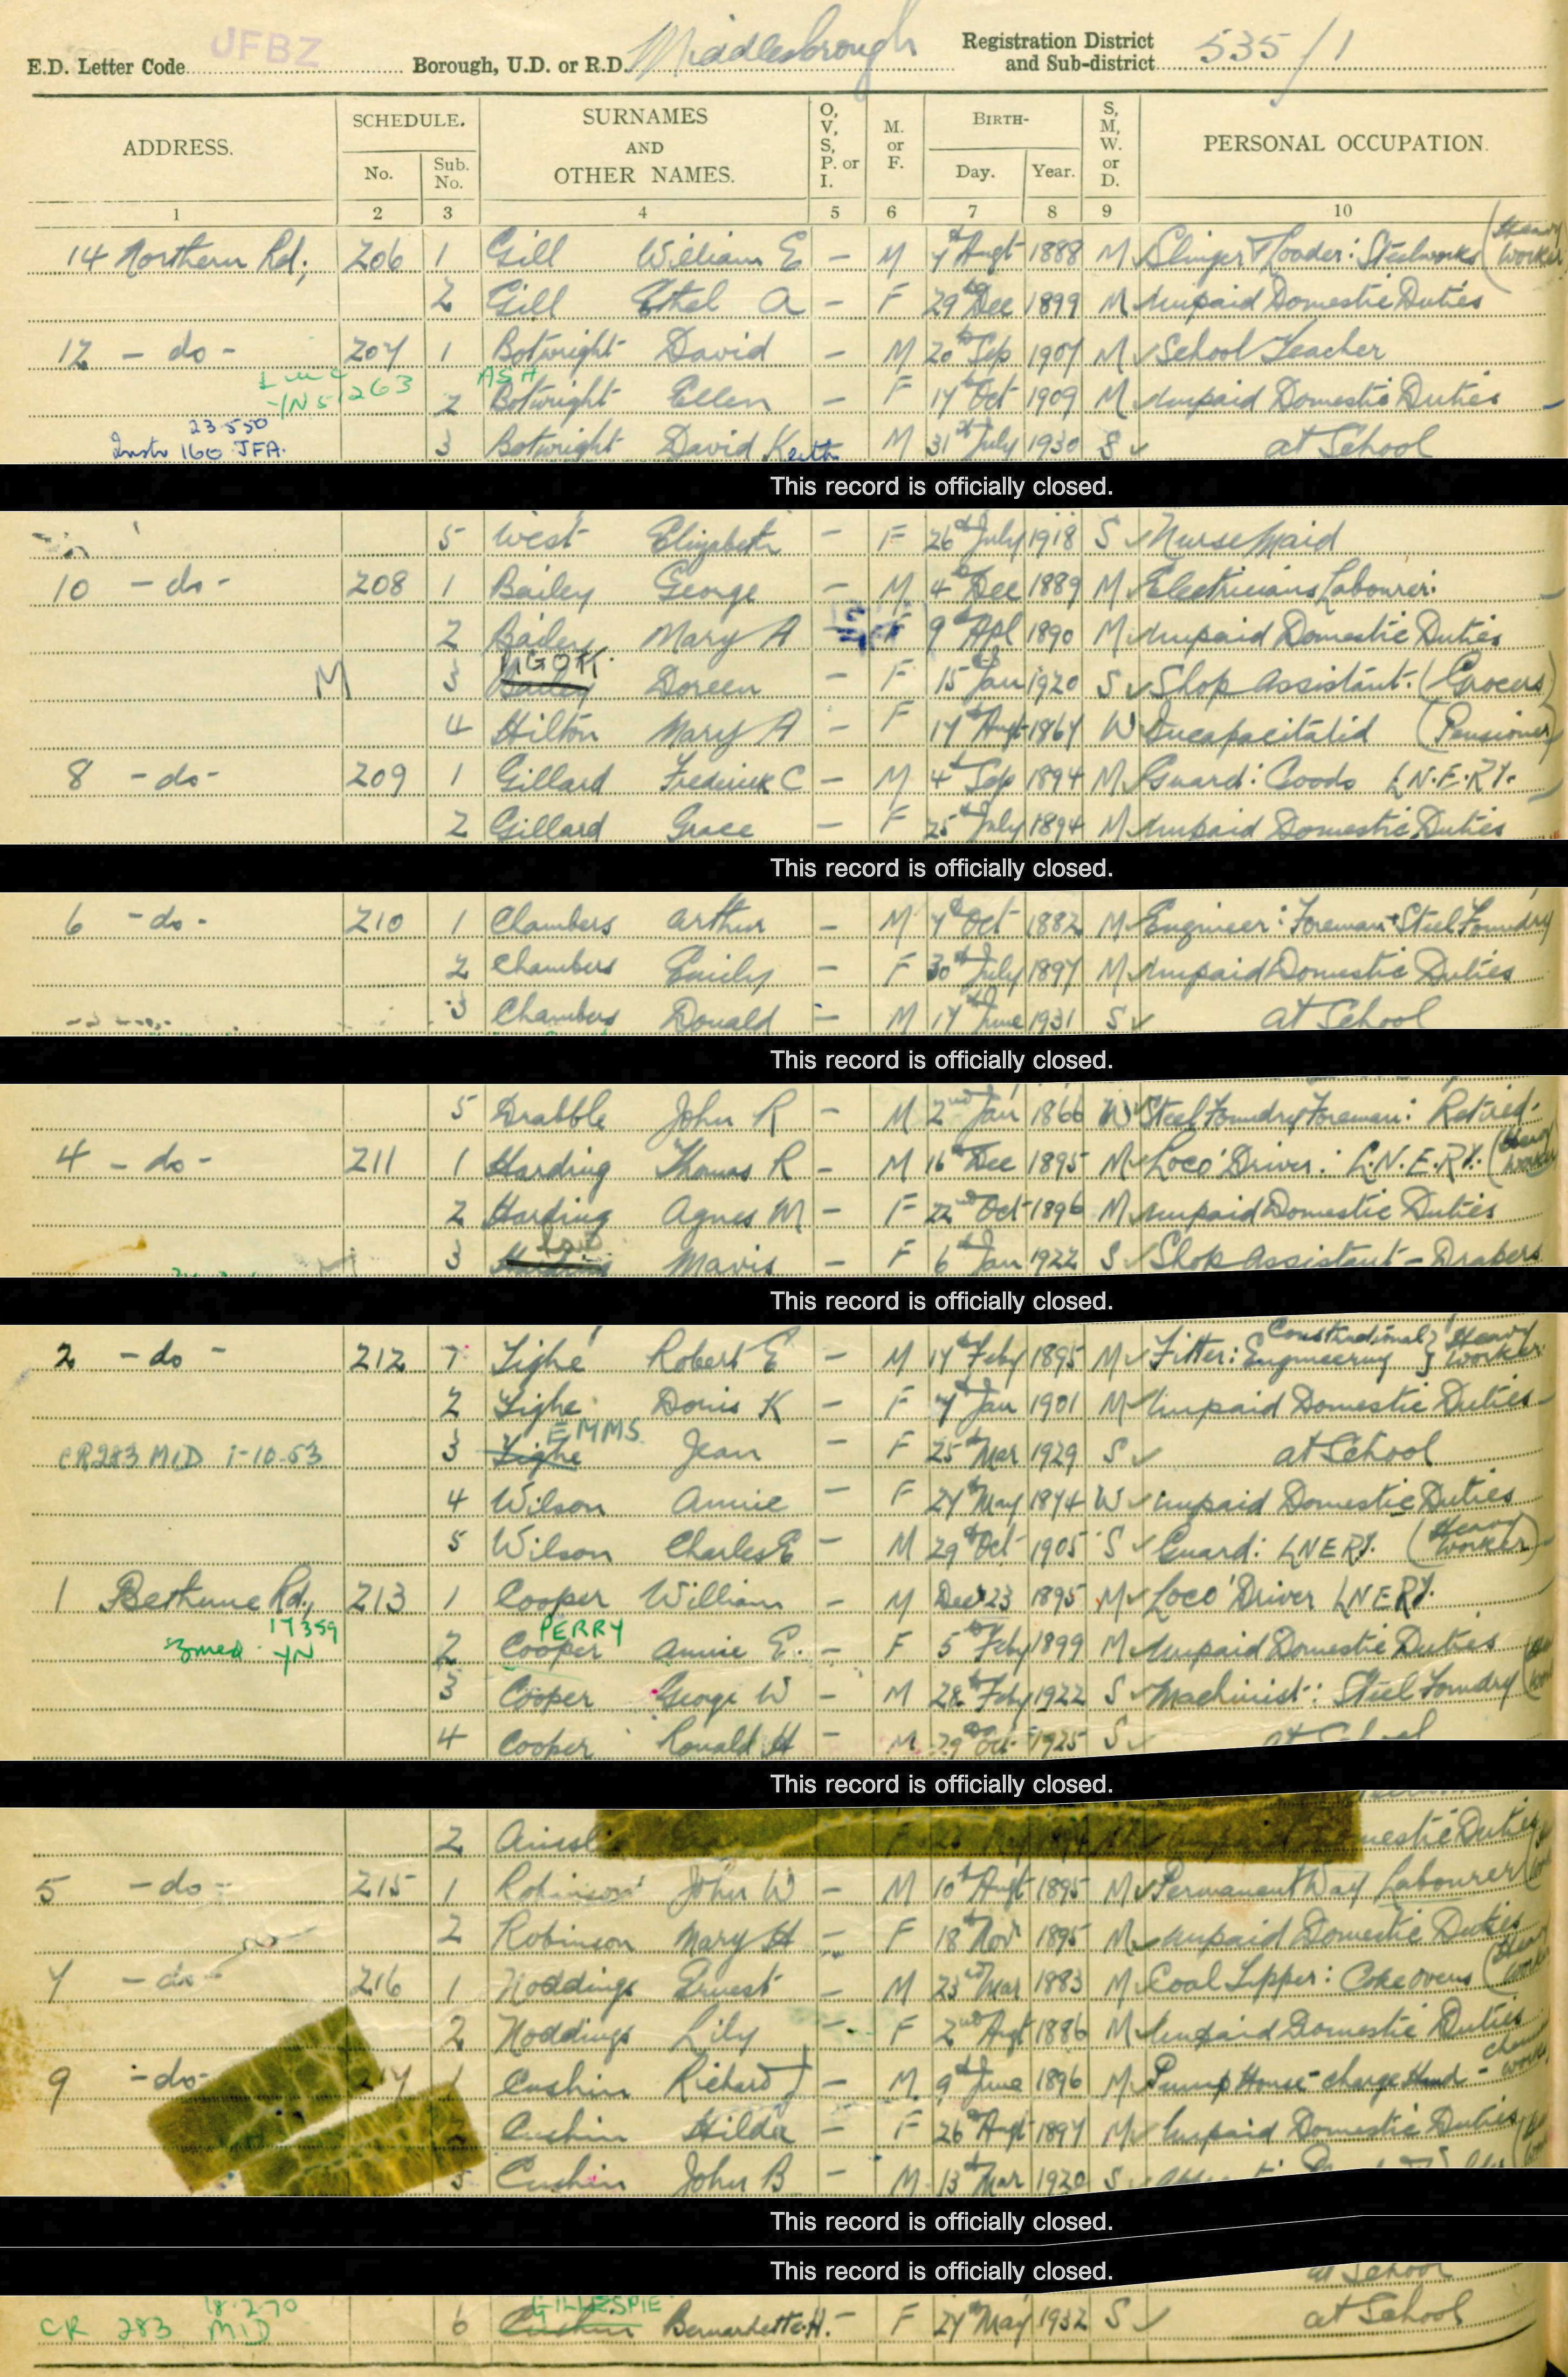 E.D. Letter Code JFBZ Borough, U.D. or R.D. Middlesbrough Registration District and Sub-district 535/1
ADDRESS. SCHEDULE. No. Sub. No. SURNAMES AND OTHER NAMES. O, V, S, P. or I. M. or F. BIRTH- Day. Year. S, M, W. or D. PERSONAL OCCUPATION.
1 2 3 4 5 6 7 8 9 10
14 Northern Rd, 206 1 Gill William E - M 7th Augt 1888 M Slinger & Loader: Steelworks (Heavy Worker
2 Gill Ethel A - F 29th Dec 1899 M Unpaid Domestic Duties
12 - do - 207 1 Botwright David - M 20th Sep 1907 M School Teacher
YN 51263 ASH
2 Botwright Ellen F 17th Oct 1909 M Unpaid Domestic Duties
23-5-50
160 JFA. 3 Botwright David Keith M 31st July 1930 S at School
This record is officially closed.
5 West Elizabeth - F 26th July 1918 S Nurse Maid
10 - do - 208 1 Bailey George - M 4th Dec 1889 M Electricians Labourer
2 Bailey Mary A - F 9th Apl 1890 M Unpaid Domestic Duties
M 3 Bailey Doreen - F 15th Jan 1920 S Shop Assistant. (Grocers)
4 Hilton Mary A - F 17th Augt 1867 W Incapacitated (Pensioner)
8 - do - 209 1 Gillard Frederick C - M 4th Sep 1894 M Guard: Goods L.N.E.RY.
2 Gillard Grace - F 25th July 1894 M Unpaid Domestic Duties
This record is officially closed.
6 - do - 210 1 Chambers Arthur - M 7th Oct 1882 M Engineer: Foreman Steel Foundry
2 Chambers Emily - F 30th July 1897 M Unpaid Domestic Duties
3 Chambers Donald - M 17th June 1931 S at School
This record is officially closed.
5 Drabble John R - M 2nd Jan 1866 W Steel Foundry Foreman: Retired.
4 - do - 211 1 Harding Thomas R - M 16th Dec 1895 M Loco' Driver: L.N.E.RY. (Heavy Worker
2 Harding Agnes M - F 22nd Oct 1896 M Unpaid Domestic Duties
3 Harding Mavis - F 6th Jan 1922 S Shop Assistant - Drapers
This record is officially closed.
2 - do - 212 1 Tighe Robert E - M 14th Feby 1895 M Fitter: Constructional Engineering } Heavy Worker
2 Tighe Doris K - F 7th Jan 1901 M Unpaid Domestic Duties
EMMS
CR283 MID 1-10-53 3 Tighe Jean - F 25th Mar 1929 S at School
4 Wilson Annie - F 27th May 1874 W Unpaid Domestic Duties
5 Wilson Charles E - M 29th Oct 1905 S Guard: LNERY. (Heavy Worker)
1 Bethune Rd, 213 1 Cooper William - M Dec 23 1895 M Loco' Driver LNERY.
17359 PERRY
YN 2 Cooper Annie E. - F 5th Feby 1899 M Unpaid Domestic Duties
3 Cooper George W - M 28th Feby 1922 S Machinist: Steel Foundry
4 Cooper Ronald H M 29th Oct 1925 S at School
This record is officially closed.
2 Ainsl Domestic Duties
5 - do - 215 1 Robinson John W - M 10th Augt 1895 M Permanent Way Labourer
2 Robinson Mary H - F 18th Nov 1895 M Unpaid Domestic Duties
7 - do - 216 1 Noddings Ernest - M 23rd Mar 1883 M Coal Tipper: Coke ovens (Heavy Worker
2 Noddings Lily - F 2nd Augt 1886 M Unpaid Domestic Duties
9 - do - 217 1 Cushin Richard J - M 9th June 1896 M Pump House charge Hand -
Cushin Hilda - F 26th Augt 1897 M Unpaid Domestic Duties
3 Cushin John B - M 13th Mar 1920 S
This record is officially closed.
This record is officially closed.
at School
18.2.70 GILLESPIE
CR 283 MID 6 Cushin Bernadette H. - F 27th May 1932 S at School